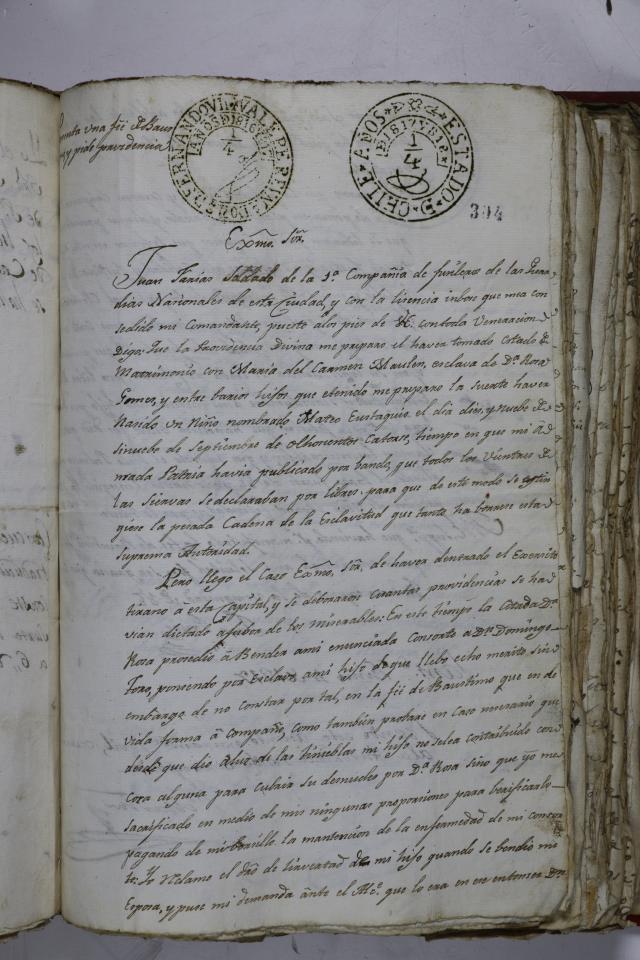 Presenta una feé de Baus
y pide providencia
FERNANDO VII VALE PARA
AÑOS D 1816
1/4
ESTADO D CHILE AÑOS
D 1817 Y 818
1/4
394
Exmo. Sor.
Juan Farias Soldado de la 1a. Compañia de fucileros de las Guar
dias Nacionales de esta Ciudad, y con la licencia que me a con
sedido mi Comandante, puesto a los pies de VE. con toda Veneracion
Digo: Que la Providencia Divina me preparo el haver tomado estado de
Matrimonio con Maria del Carmen Maulen, esclava de Da. Rosa
Gomes, y entre barios hijos que e tenido me preparo la suerte haver
Nasido un Niño nombrado Mateo Eustaquio el dia dies, y nuebe
de Septiembre de ochosentos Catorse, tiempo en que mi
Patria havia publicado por bando, que todos los Vientres de
las Sclavas se declaraban por libres para que de este modo se estin
giese la pesada Cadena de la Esclavitud que tanto ha borrese esta
suprema Autoridad.
Pero llego el Caso Exmo. Sor. de haver dentrado el Exersito
tirano â esta Capital, y se deboraron cuantas providencias se ha
vian dictado a fabor de los miserables: En este tiempo la citada Da.
Rosa prosedio â Bender a mi enunciada Consorte a Dn. Domingo
Toro, poniendo por Esclavo a mi hijo de que llebo echo merito, sin
embargo de no constar por tal, en la feé de Baustimo que en de
vida forma â compaño, como tambien probare en caso nesesario que
desde que dio a lus de las tinieblas mi hijo no se le a contribuido con
cosa alguna para cubrir su desnudes por Da. Rosa sino que yo me e
sacrificado en medio de mis ningunas proporsiones para berificarlo
pagando de mi bolsillo la mantencion de la enfermedad de mi consor
te: Yo reclame el dro. de livertad de mi hijo quando se bendio mi
Esposa, y puse mi demanda ânte el Alce. que lo era en entonses Dn.